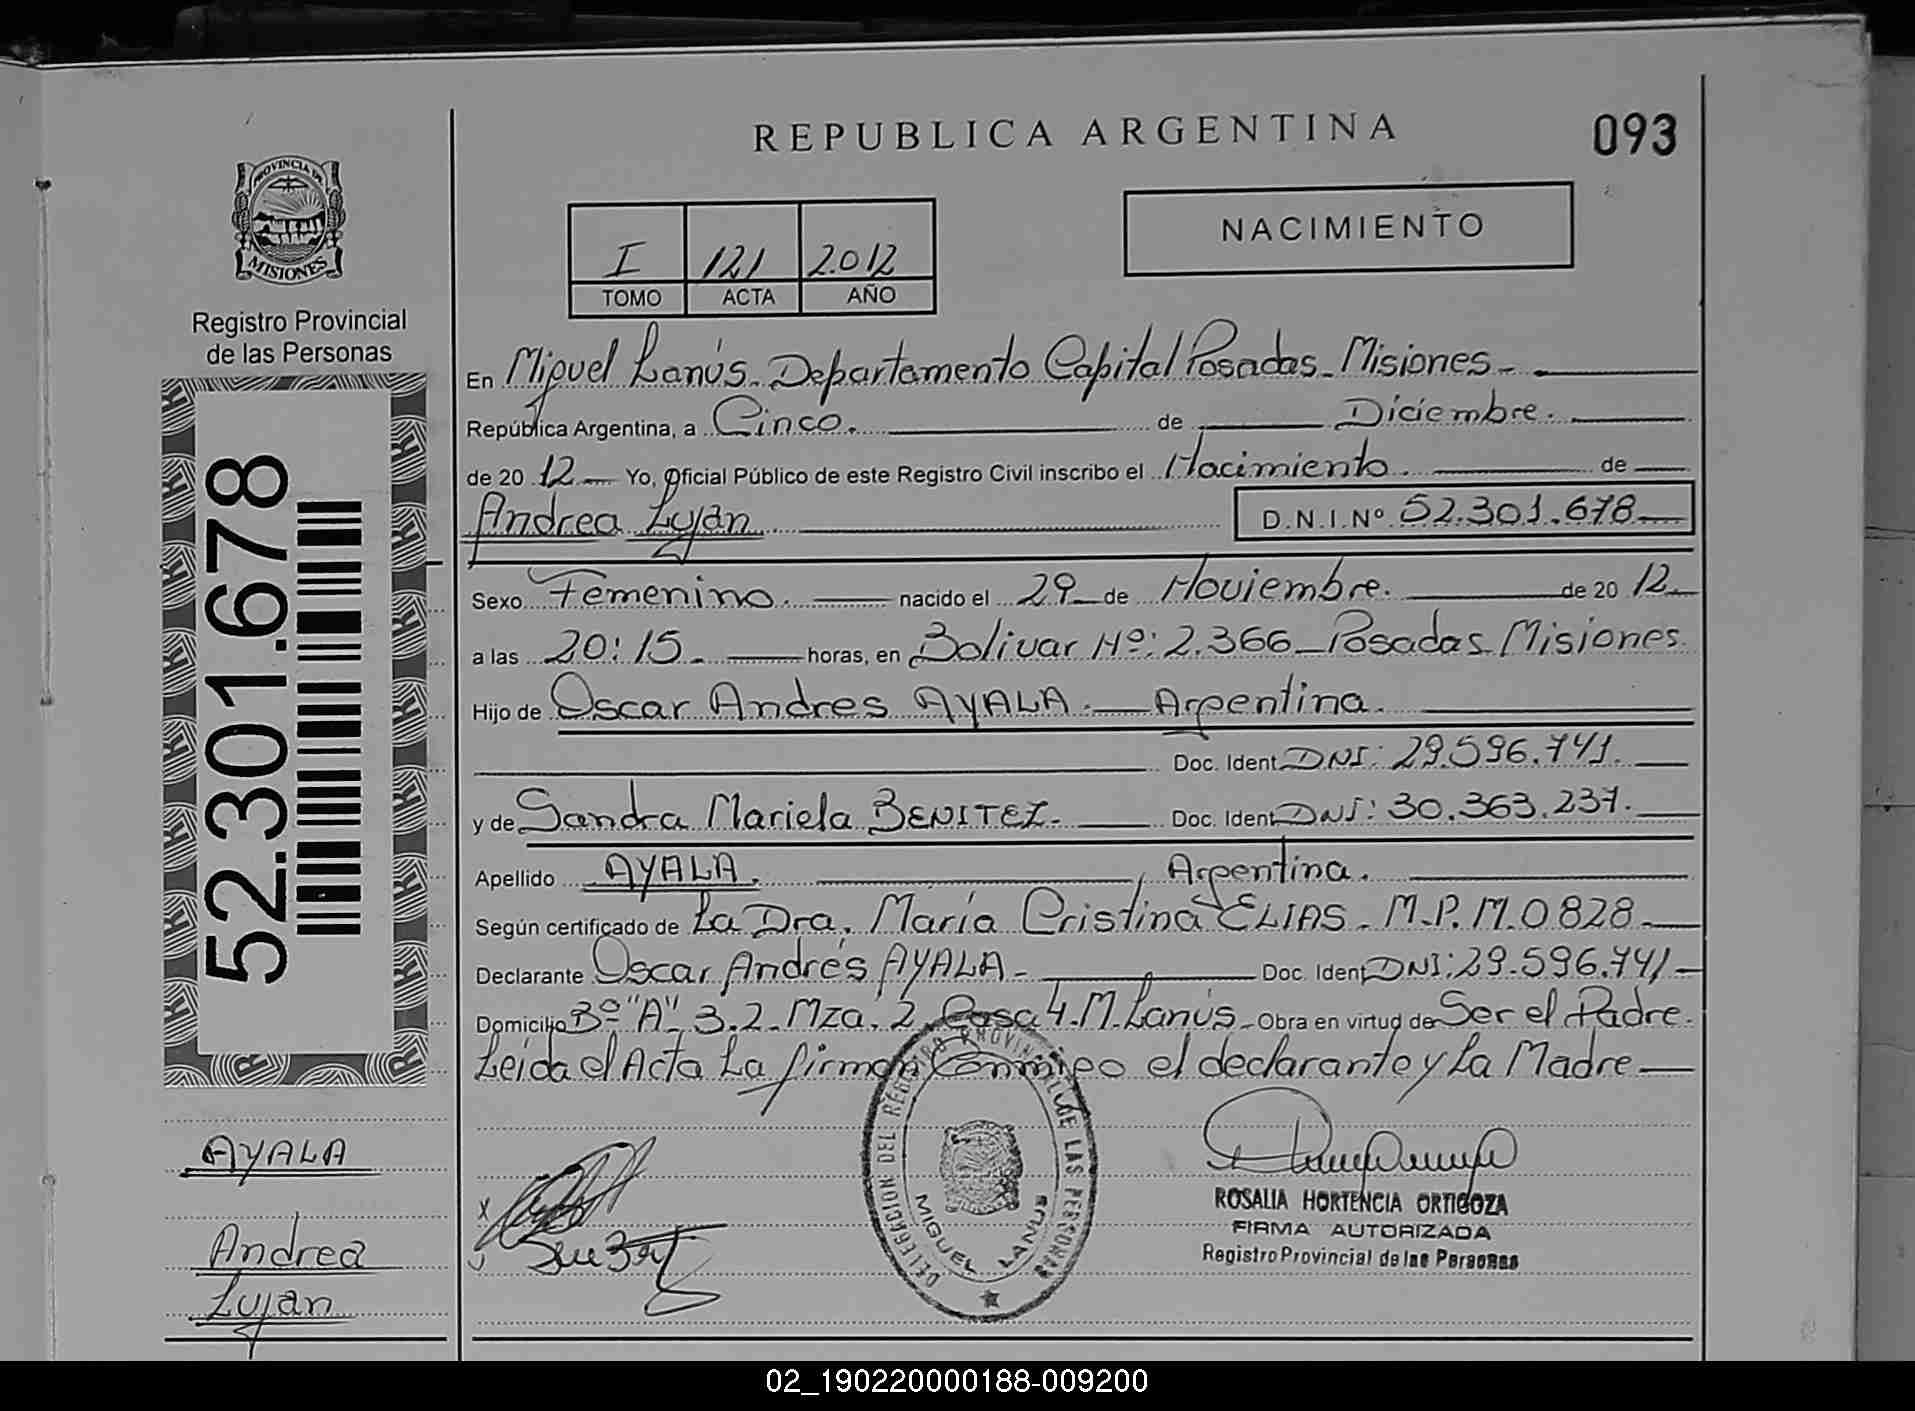 REPUBLICA ARGENTINA
093
PROVINCIA DE
MISIONES
Registro Provincial
de las Personas
52.301.678
I 121 2.012
TOMO ACTA AÑO
NACIMIENTO
En Miguel Lanús. Departamento Capital Posadas. Misiones.
República Argentina, a Cinco. de Diciembre.
de 20 12 Yo, Oficial Público de este Registro Civil inscribo el Nacimiento. de
Andrea Luján D.N.I.Nº 52.301.678
Sexo Femenino. nacido el 29 de Noviembre. de 20 12
a las 20:15. horas, en Bolivar Nº: 2.366 Posadas Misiones.
Hijo de Oscar Andres AYALA. Argentina.
Doc. Ident DNI: 29.596.741.
y de Sandra Mariela BENITEZ. Doc. Ident DNI: 30.363.237.
Apellido AYALA. Argentina.
Según certificado de La Dra. María Cristina ELIAS. M.P.M.0828
Declarante Oscar Andrés AYALA Doc. Ident DNI: 29.596.741
Domicilio Bº "A" 3.2. Mza. 2 Casa 4. M. Lanús Obra en virtud de Ser el Padre.
Leida el Acta La firman Conmigo el declarante y La Madre
AYALA
Andrea
Luján
X
DELEGACION DEL REGISTRO PROVINCIAL DE LAS PERSONAS
MIGUEL LANUS
ROSALIA HORTENCIA ORTIGOZA
FIRMA AUTORIZADA
Registro Provincial de las Personas
02_190220000188-009200